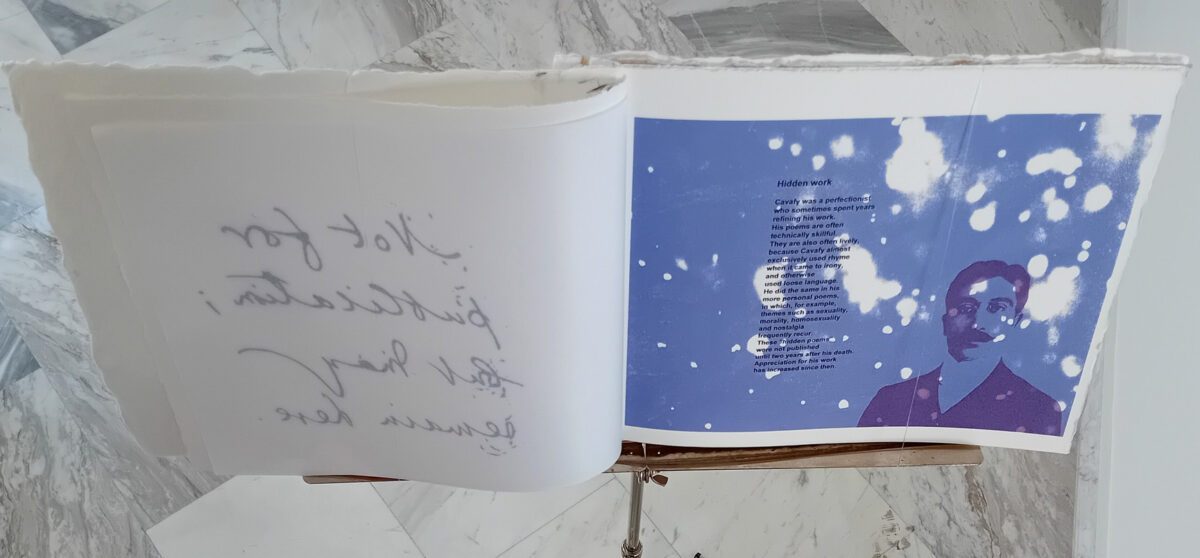 Not for
publication;
but may
remain here.
Hidden work
Cavafy was a perfectionist
who sometimes spent years
refining his work.
His poems are often
technically skillful.
They are also often lively,
because Cavafy almost
exclusively used rhyme
when it came to irony,
and otherwise
used loose language.
He did the same in his
more personal poems,
in which, for example,
themes such as sexuality,
morality, homosexuality
and nostalgia
frequently recur.
These "hidden poems"
were not published
until two years after his death.
Appreciation for his work
has increased since then.